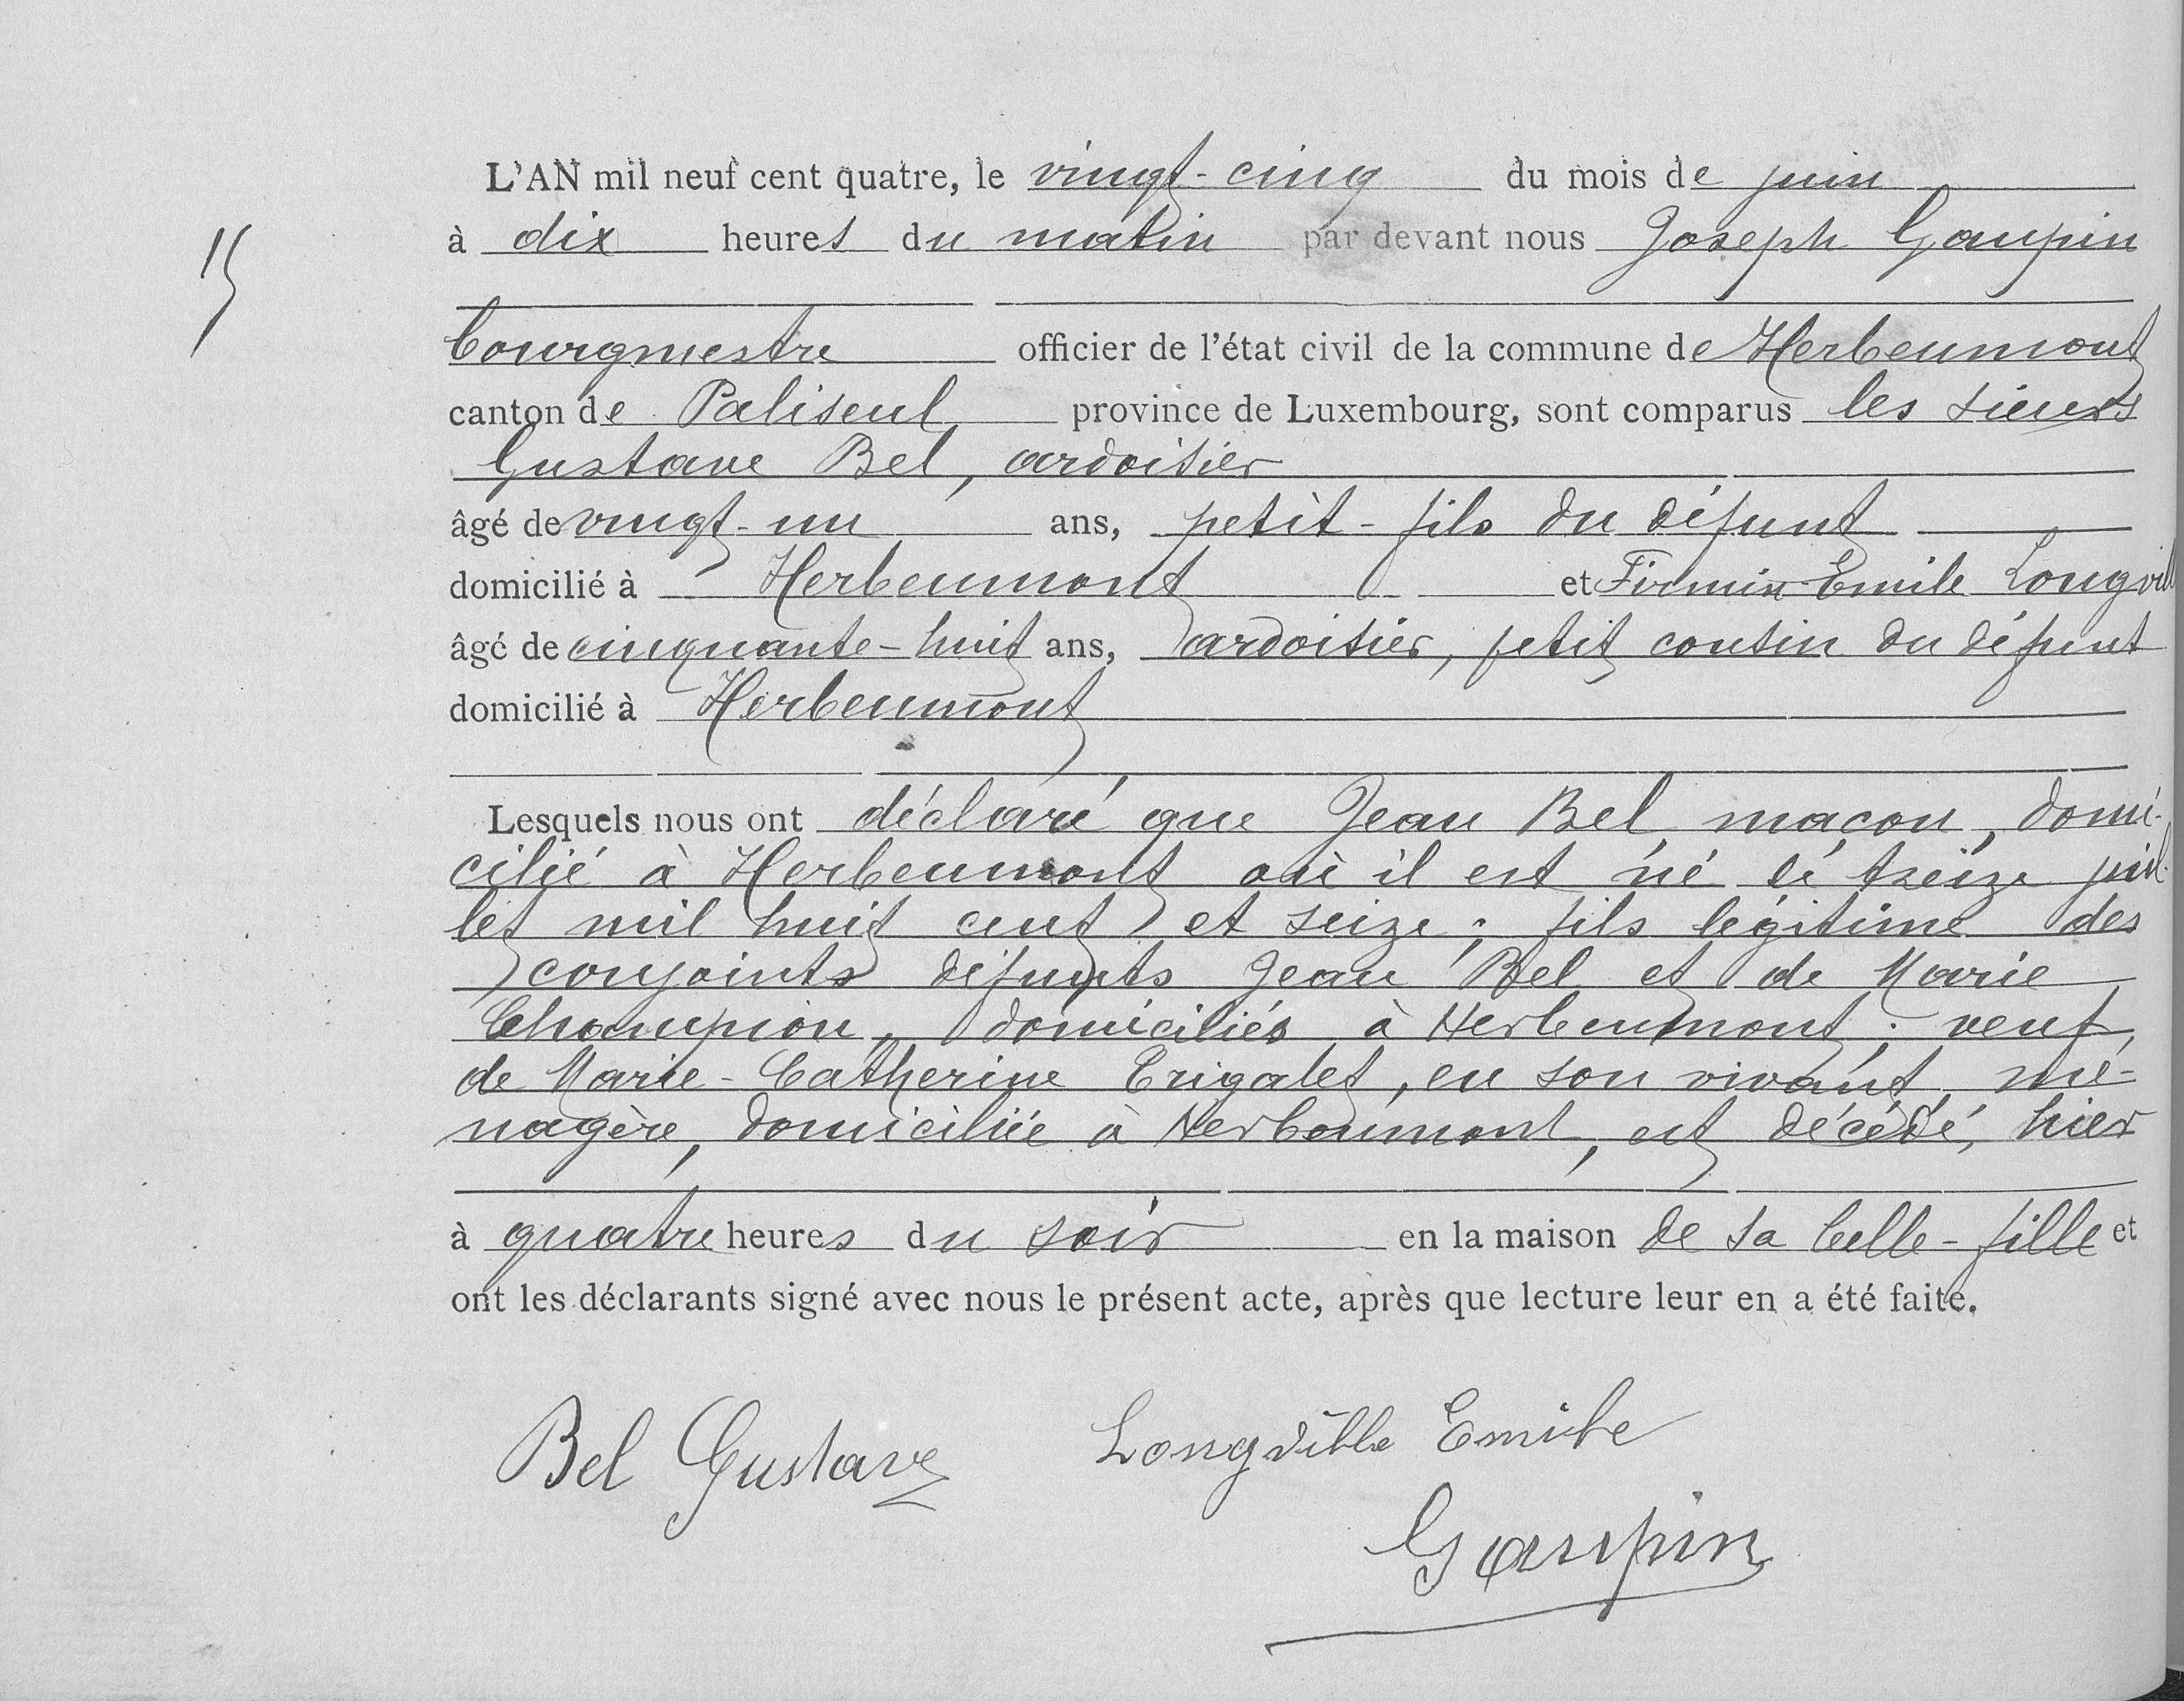 L'AN mil neuf cent quatre, le vingt-cinq du mois de juin
15
à dix heures du matin par devant nous Joseph Gaupin
bourgmestre officier de l'état civil de la commune de Herbeumont
canton de Paliseul province de Luxembourg, sont comparus les sieurs
Gustave Bel, ardoisier
âgé de vingt-un ans, petit-fils du défunt
domicilié à Herbeumont et Firmin Emile Longvill
âgé de cinquante-huit ans, ardoisier, petit cousin du défunt
domicilié à Herbeumont
Lesquels nous ont déclaré que Jean Bel, maçon, domi-
cilié à Herbeumont où il est né le treize juil-
let mil huit cent et seize; fils légitime des
conjoints défunts Jean Bel et de Marie
Champion, domiciliés à Herbeumont; veuf,
de Marie-Catherine Erigalet, en son vivant, mé-
nagère, domiciliée à Herbeumont, est décédé, hier
à quatre heures du soir en la maison de sa belle-fille et
ont les déclarants signé avec nous le présent acte, après que lecture leur en a été faite.
Bel Gustave Longville Emile
Gaupin